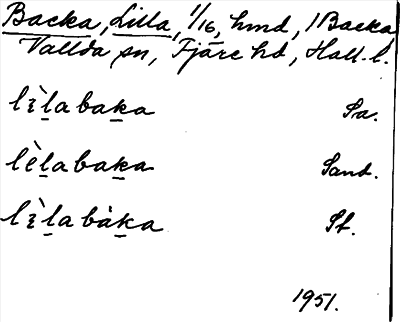 Backa, Lilla, 1/16, hmd, i Backa
Vallda sn, Fjäre hd, Hall. l.
lɛ̀l̲abak̲a Sa.
lèl̲abak̲a Sand.
lɛ̀l̲abàk̲a St.
1951.